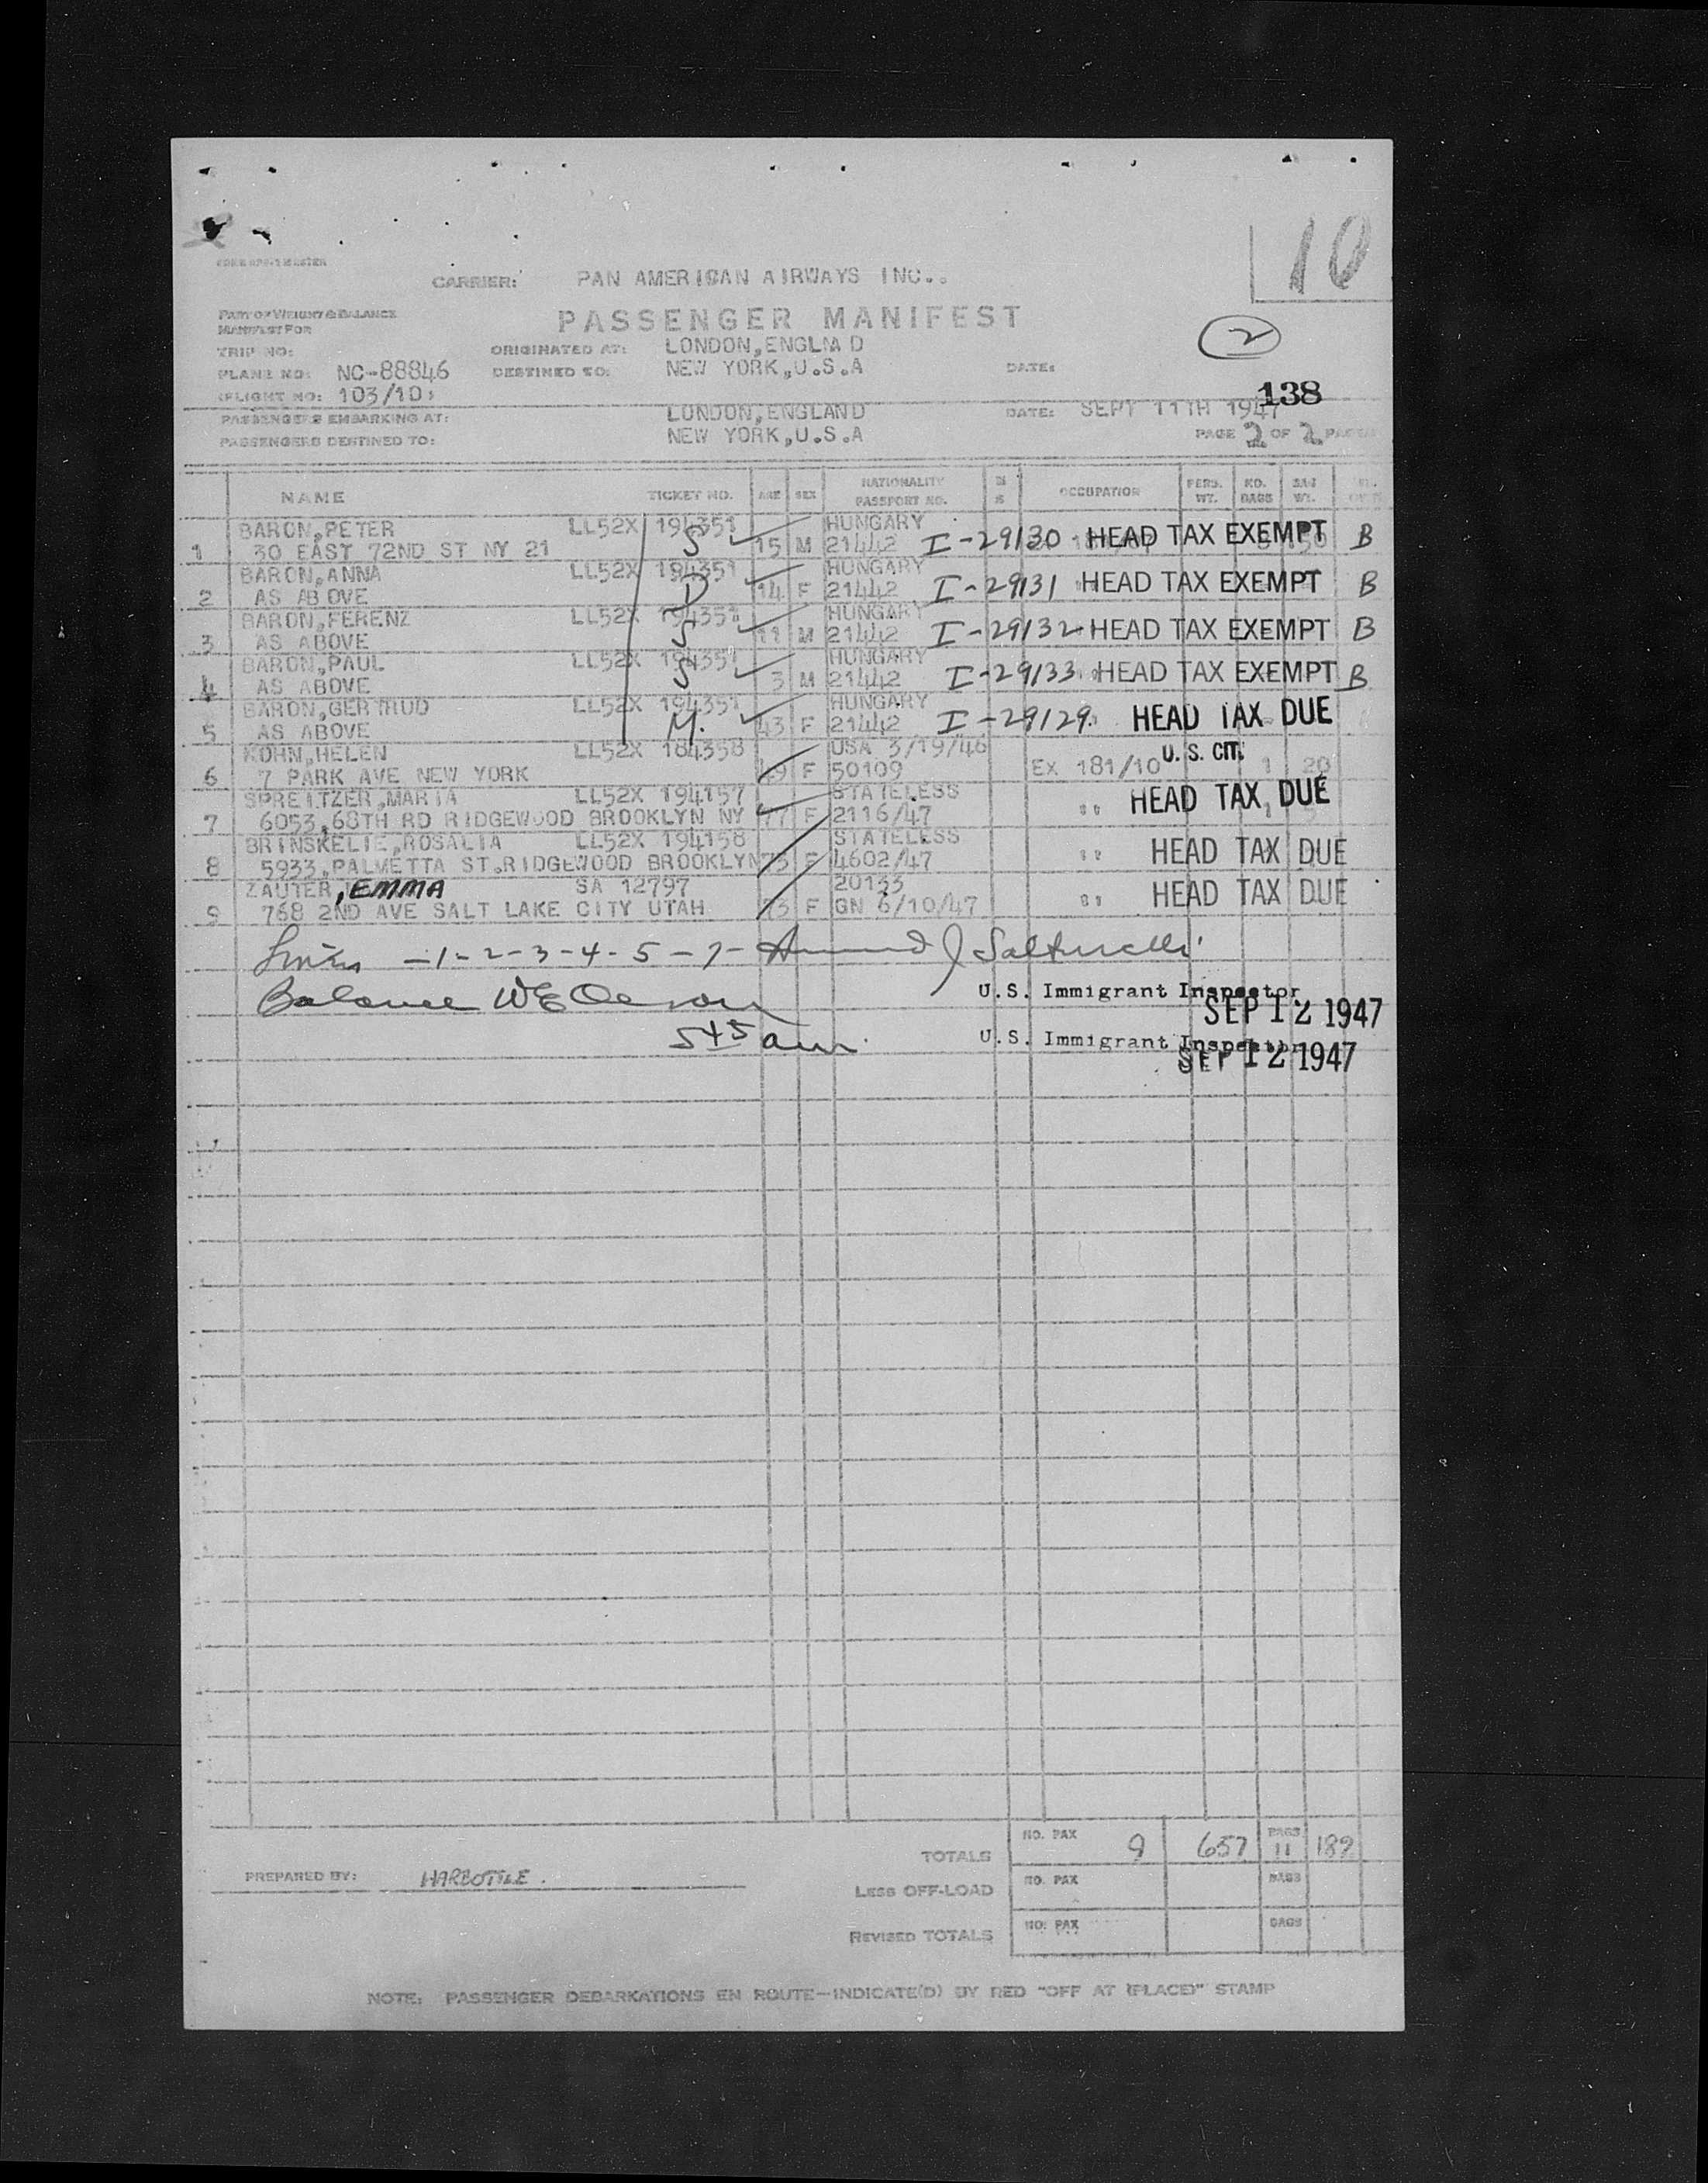 10
CARRIER: PAN AMERICAN AIRWAYS INC..
PART OF WEIGHT & BALANCE
MANIFEST FOR
PASSENGER MANIFEST
2
TRIP NO:
ORIGINATED AT: LONDON,ENGLNA D
PLANE NO: NC-88846
DESTINED TO: NEW YORK,U.S.A
DATE:
FLIGHT NO: 103/10
138
PASSENGERS EMBARKING AT: LONDON,ENGLAND
DATE: SEPT 11TH 1947
PASSENGERS DESTINED TO: NEW YORK,U.S.A
PAGE 2 OF 2 PAGES
NAME TICKET NO. AGE SEX NATIONALITY PASSPORT NO. OCCUPATION PERS. WT. NO. BAGS BAG WT.
BARON,PETER LL52X 194351 HUNGARY
1 30 EAST 72ND ST NY 21 S 15 M 21442 I-29130 HEAD TAX EXEMPT B
BARON,ANNA LL52X 194351 HUNGARY
2 AS ABOVE D 14 F 21442 I-29131 HEAD TAX EXEMPT B
BARON,FERENZ LL52X 194351 HUNGARY
3 AS ABOVE S 11 M 21442 I-29132 HEAD TAX EXEMPT B
BARON,PAUL LL52X 194351 HUNGARY
4 AS ABOVE S 3 M 21442 I-29133 HEAD TAX EXEMPT B
BARON,GERTRUD LL52X 194351 HUNGARY
5 AS ABOVE M. 43 F 21442 I-29129 HEAD TAX DUE
KOHN,HELEN LL52X 184358 USA 3/19/46
6 7 PARK AVE NEW YORK 49 F 50109 EX 181/10 U.S. CIT. 1 20
SPREITZER,MARIA LL52X 194157 STATELESS
7 6053,68TH RD RIDGEWOOD BROOKLYN NY 77 F 2116/47 " HEAD TAX DUE
BRINSKELIE,ROSALIA LL52X 194158 STATELESS
8 5933,PALMETTA ST.RIDGEWOOD BROOKLYN 73 F 4602/47 " HEAD TAX DUE
ZAUTER,EMMA SA 12797 20133
9 768 2ND AVE SALT LAKE CITY UTAH 73 F GN 6/10/47 " HEAD TAX DUE
Lines -1-2-3-4-5-7-
Balance
U.S. Immigrant Inspector
SEP 12 1947
545 am
U.S. Immigrant Inspector
SEP 12 1947
TOTALS NO. PAX 9 657 BAGS 11 189
PREPARED BY: HARBOTTLE.
LESS OFF-LOAD NO. PAX BAGS
REVISED TOTALS NO. PAX BAGS
NOTE: PASSENGER DEBARKATIONS EN ROUTE—INDICATE(D) BY RED "OFF AT (PLACE)" STAMP